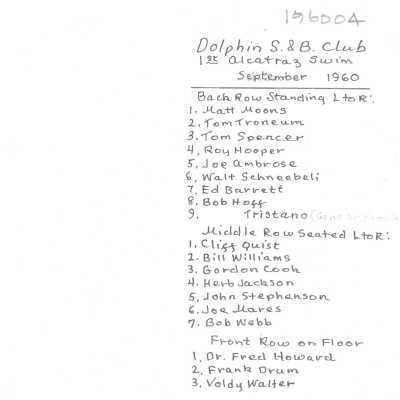 196004
Dolphin S. & B. Club
1st Alcatraz Swim
September 1960
Back Row Standing L to R:
1. Matt Moons
2. Tom Troneum
3. Tom Spencer
4, Roy Hooper
5, Joe Ambrose
6, Walt Schneebeli
7, Ed Barrett
8. Bob Hoff
9. Tristano
Middle Row Seated L to R:
1. Cliff Quist
2. Bill Williams
3. Gordon Cook
4. Herb Jackson
5, John Stephenson
6, Joe Mares
7. Bob Webb
Front Row on Floor
1, Dr. Fred Howard
2, Frank Drum
3. Voldy Walter